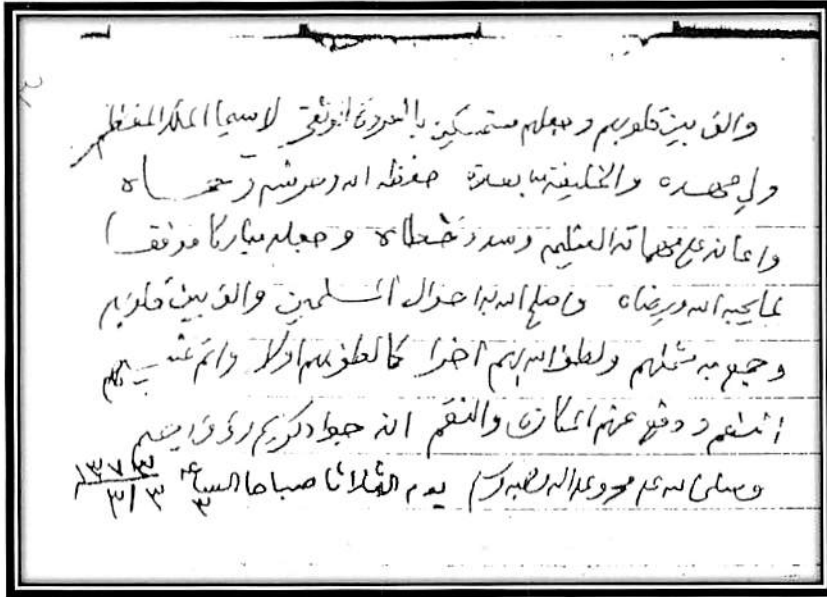 والف بين قلوبهم وجعلهم مستمسكين بالعروة الوثقى لاسيما الملك المعظم
ولي عهده والخليفة من بعده حفظه الله وحرسه وتحماه
واعانه على مهماته العظيمه وسدد خطاه وجعله مباركا موفقا
لما يحبه الله ويرضاه واصلح الله به احوال المسلمين والف بين قلوبهم
وجمع به شملهم ولطف الله بهم اخرا كما لطف بهم اولا واتم عليهم
النعم ودفع عنهم المكاره والنقم انه جواد كريم رؤوف رحيم
وصلى الله على محمد وعلى اله وصحبه وسلم يوم الثلاثا صباحا الساعه ٣
١٣٧٣
٣/٣